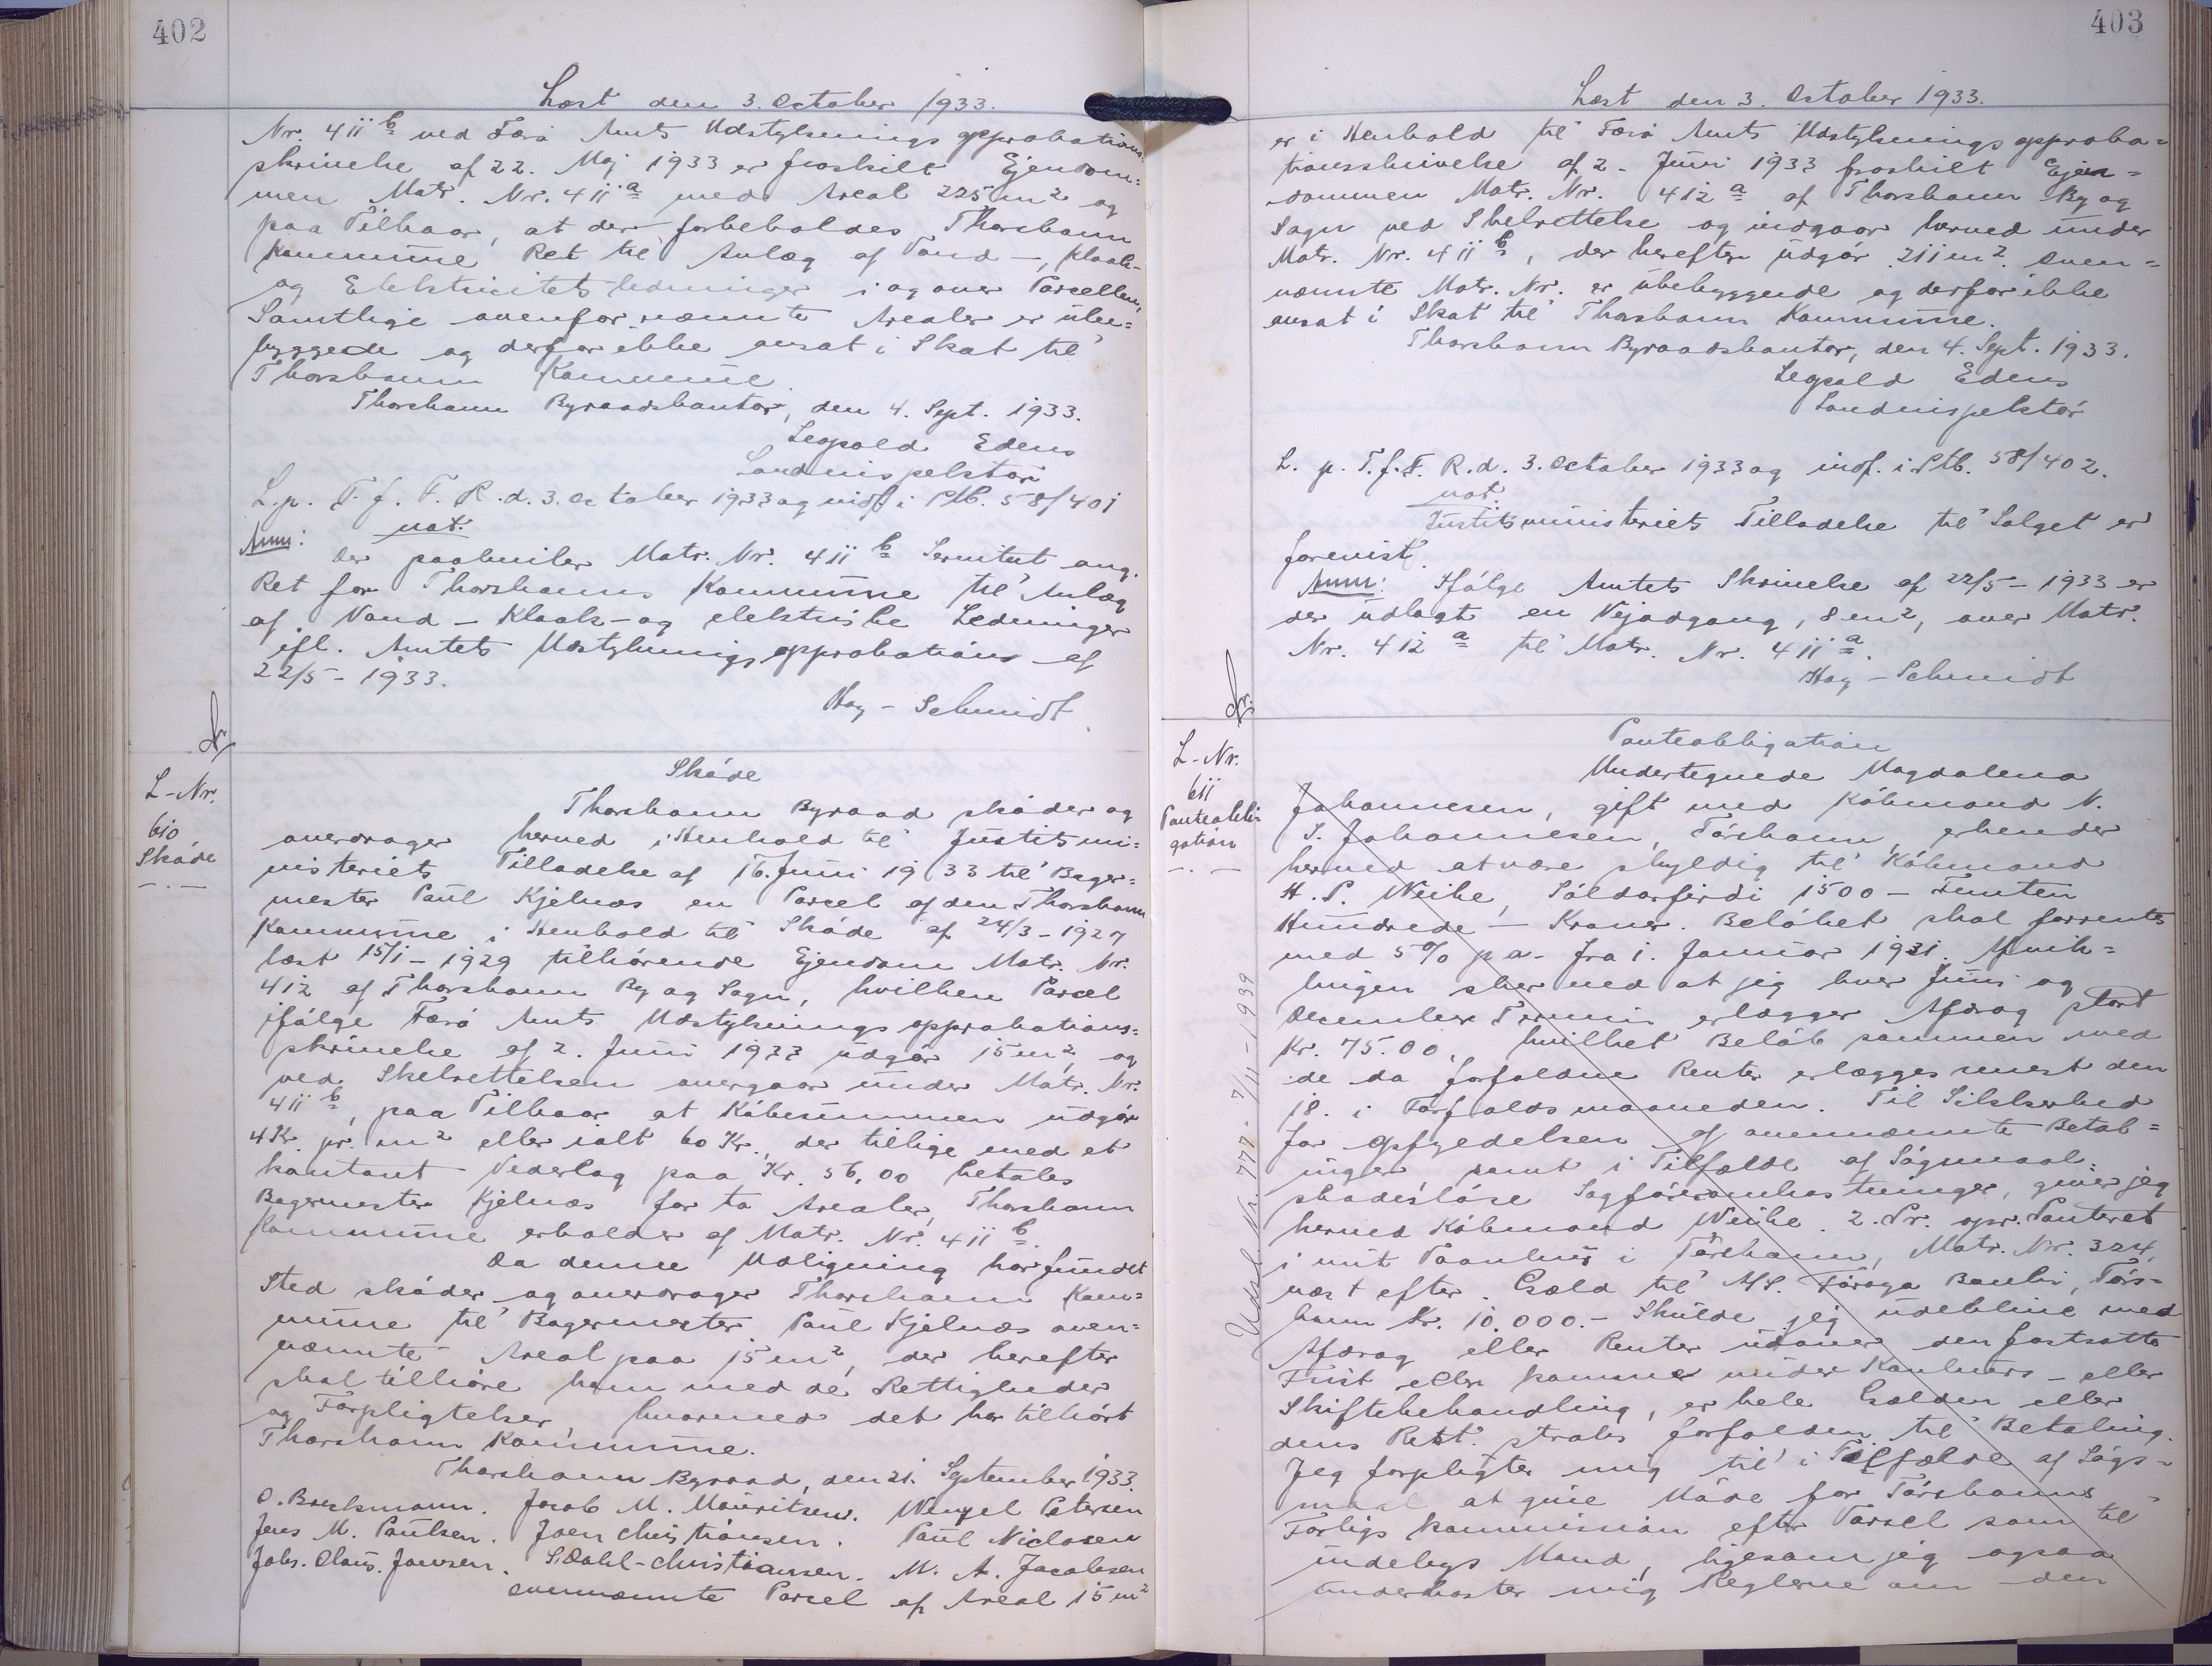 402
Læst den 3. October 1933.
Nr. 411 b ved Færø Amts Udstyknings approbations-
skrivelse af 22. Maj 1933 er fraskilt Ejendom-
men Matr. Nr. 411 a med Areal 225 m2 og
paa Vilkaar, at der forbeholdes Thorshavn
Kommune Ret til Anlæg af Vand-, Kloak-
og Elektricitetsledninger i og over Parcellen,
Samtlige ovenfor nævnte Arealer er ube-
byggede og derfor ikke ansat i Skat til
Thorshavn Kommune.
Thorshavn Byraadskontor, den 4. Sept. 1933.
Legvald Edens
Landinspektør
L. p. T. f. F. R. d. 3. October 1933 og indf. i Ptb. 58/401
not.
Anm: der paahviler Matr. Nr. 411 b Servitut ang.
Ret for Thorshavns Kommune til Anlæg
af Vand- Kloak- og elektriske Ledninger
ifl. Amtets Udstyknings approbation af
22/5 - 1933.
Hey-Schmidt
L-Nr.
610
Skøde
Skøde
Thorshavn Byraad skøder og
overdrager herved i Henhold til Justitsmi-
nisteriets Tilladelse af 16. Juni 1933 til Bager-
mester Paul Kjelnæs en Parcel af den Thorshavn
Kommune i Henhold til Skøde af 24/3 - 1927
læst 15/1 - 1929 tilhørende Ejendom Matr. Nr.
412 af Thorshavn By og Sogn, hvilken Parcel
ifølge Færø Amts Udstyknings approbations-
skrivelse af 2. Juni 1933 udgør 15 m2, og
ved Skelrettelsen overgaar under Matr. Nr.
411 b, paa Vilkaar at Købesummen udgør
4 Kr. pr. m2 eller ialt 60 Kr., der tillige med et
kontant Vederlag paa Kr. 56,00 betales
Bagermester Kjelnæs for to Arealer, Thorshavn
Kommune erholder af Matr. Nr. 411 b.
Da denne Udligning har fundet
Sted skøder og overdrager Thorshavn Kom-
mune til Bagermester Paul Kjelnæs oven-
nævnte Areal paa 15 m2, der herefter
skal tilhøre ham med de Rettigheder
og Forpligtelser, hvormed det har tilhørt
Thorshavn Kommune.
Thorshavn Byraad, den 21. September 1933.
Jacob M. Mauritsen. Wenzel Petersen
Jens M. Paulsen. Joen Christiansen. Paul Niclasen
Johs. Claus. Joensen. S. Dahl-Christiansen. M. A. Jacobsen
Ovennævnte Parcel af Areal 15 m2
403
Læst den 3. October 1933.
er i Henhold til Færø Amts Udstyknings approba-
tionsskrivelse af 2. Juni 1933 fraskilt Ejen-
dommen Matr. Nr. 412 a af Thorshavn By og
Sogn ved Skelrettelse og indgaar herved under
Matr. Nr. 411 b, der herefter udgør 211 m2. Oven-
nævnte Matr. Nr. er ubebyggende og derfor ikke
ansat i Skat til Thorshavn Kommune.
Thorshavn Byraadskontor, den 4. Sept. 1933.
Legvald Edens
Landinspektør
L. p. T. f. F. R. d. 3. October 1933 og indf. i Ptb. 58/402.
not.
Justitsministeriets Tilladelse til Salget er
forevist.
Anm: Ifølge Amtets Skrivelse af 22/5 - 1933 er
der udlagt en Vejadgang, 8 m2, over Matr.
Nr. 412 a til Matr. Nr. 411 a.
Hey-Schmidt
L-Nr.
611
Panteobli-
gation
Panteobligation
Undertegnede Magdalena
Johannesen, gift med Købmand N.
S. Johannesen, Tórshavn, erkender
herved at være skyldig til Købmand
H. P. Weihe, Søldarfirði 1500 - Femten
Hundrede - Kroner. Beløbet skal forrentes
med 5% p.a. fra 1. Januar 1931. Afvik-
lingen sker ved at jeg hver Juni og
December Termin erlægger Afdrag stort
Kr. 75.00, hvilket Beløb sammen med
de da forfaldne Renter erlægges senest den
18. i Forfaldsmaaneden. Til Sikkerhed
for Opfyldelsen af ovennævnte Betal-
inger samt i Tilfælde af Søgsmaal:
skadesløse Sagføreromkostninger, giver jeg
herved Købmand Weihe 2. Pr. opr. Panteret
i mit Vaanhus i Tórshavn, Matr. Nr. 324,
næst efter Gæld til A/S. Føroya Banki, Tórs-
havn Kr. 10.000.- Skulde jeg udeblive med
Afdrag eller Renter udover den fastsatte
Frist eller komme under Konkurs- eller
Skiftebehandling, er hele Gælden eller
dens Rest straks forfalden til Betaling.
Jeg forpligter mig til i Tilfælde af Søgs-
maal at give Møde for Tórshavns
Forligs kommission efter Varsel som til
indebys Mand, ligesom jeg ogsaa
underkaster mig Reglerne om den
Udsl. L. Nr. 777 - 7/11 - 1939